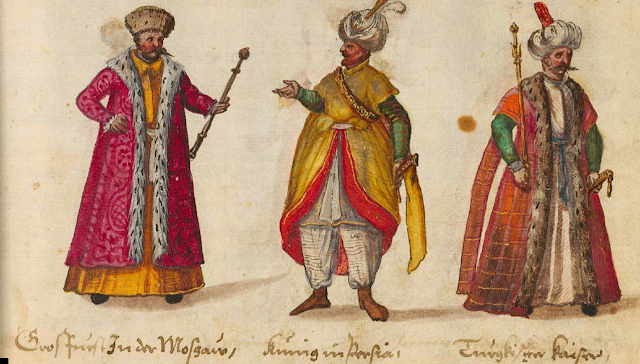 Grosfurst In der Mosgaw, Künig in Persia, Türgkischer Kaiser